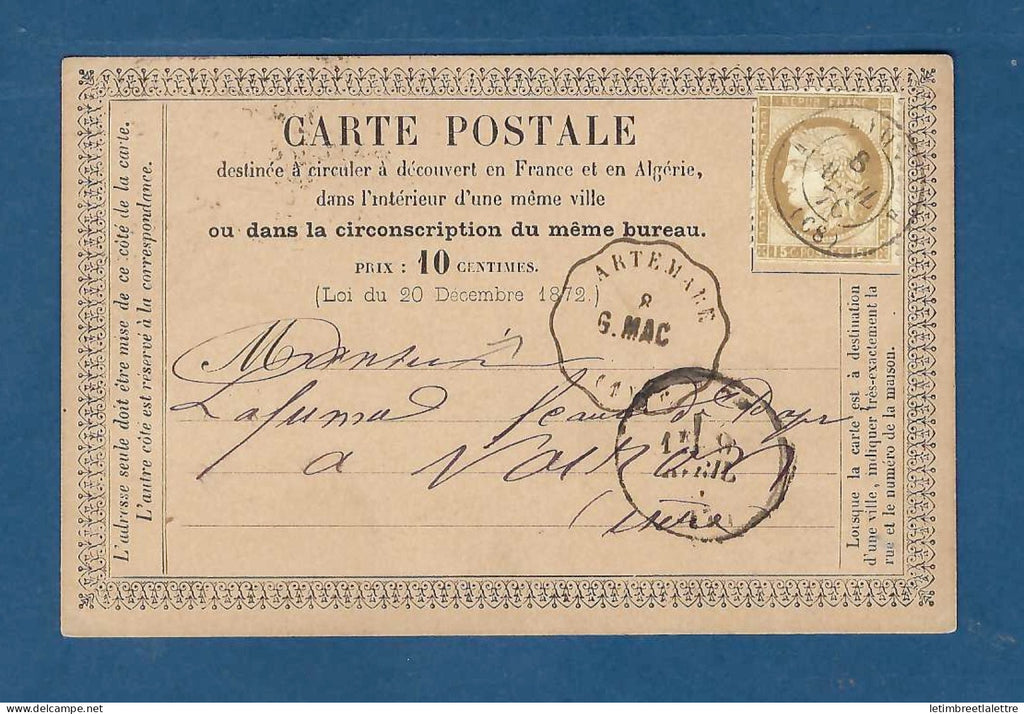 CARTE POSTALE
destinée à circuler à découvert en France et en Algérie,
dans l'intérieur d'une même ville
ou dans la circonscription du même bureau.
PRIX : 10 CENTIMES.
(Loi du 20 Décembre 1872.)
L'adresse seule doit être mise de ce côté de la carte.
L'autre côté est réservé à la correspondance.
REPUB FRANC
15 C POSTES 15 C
(68)
ARTEMARE
8
G.MAC
Monsieur
Lafuma
à Voiron
Isère
1
9
AVRIL
Lorsque la carte est à destination
d'une ville, indiquer très-exactement la
rue et le numéro de la maison.
letimbreetlalettre